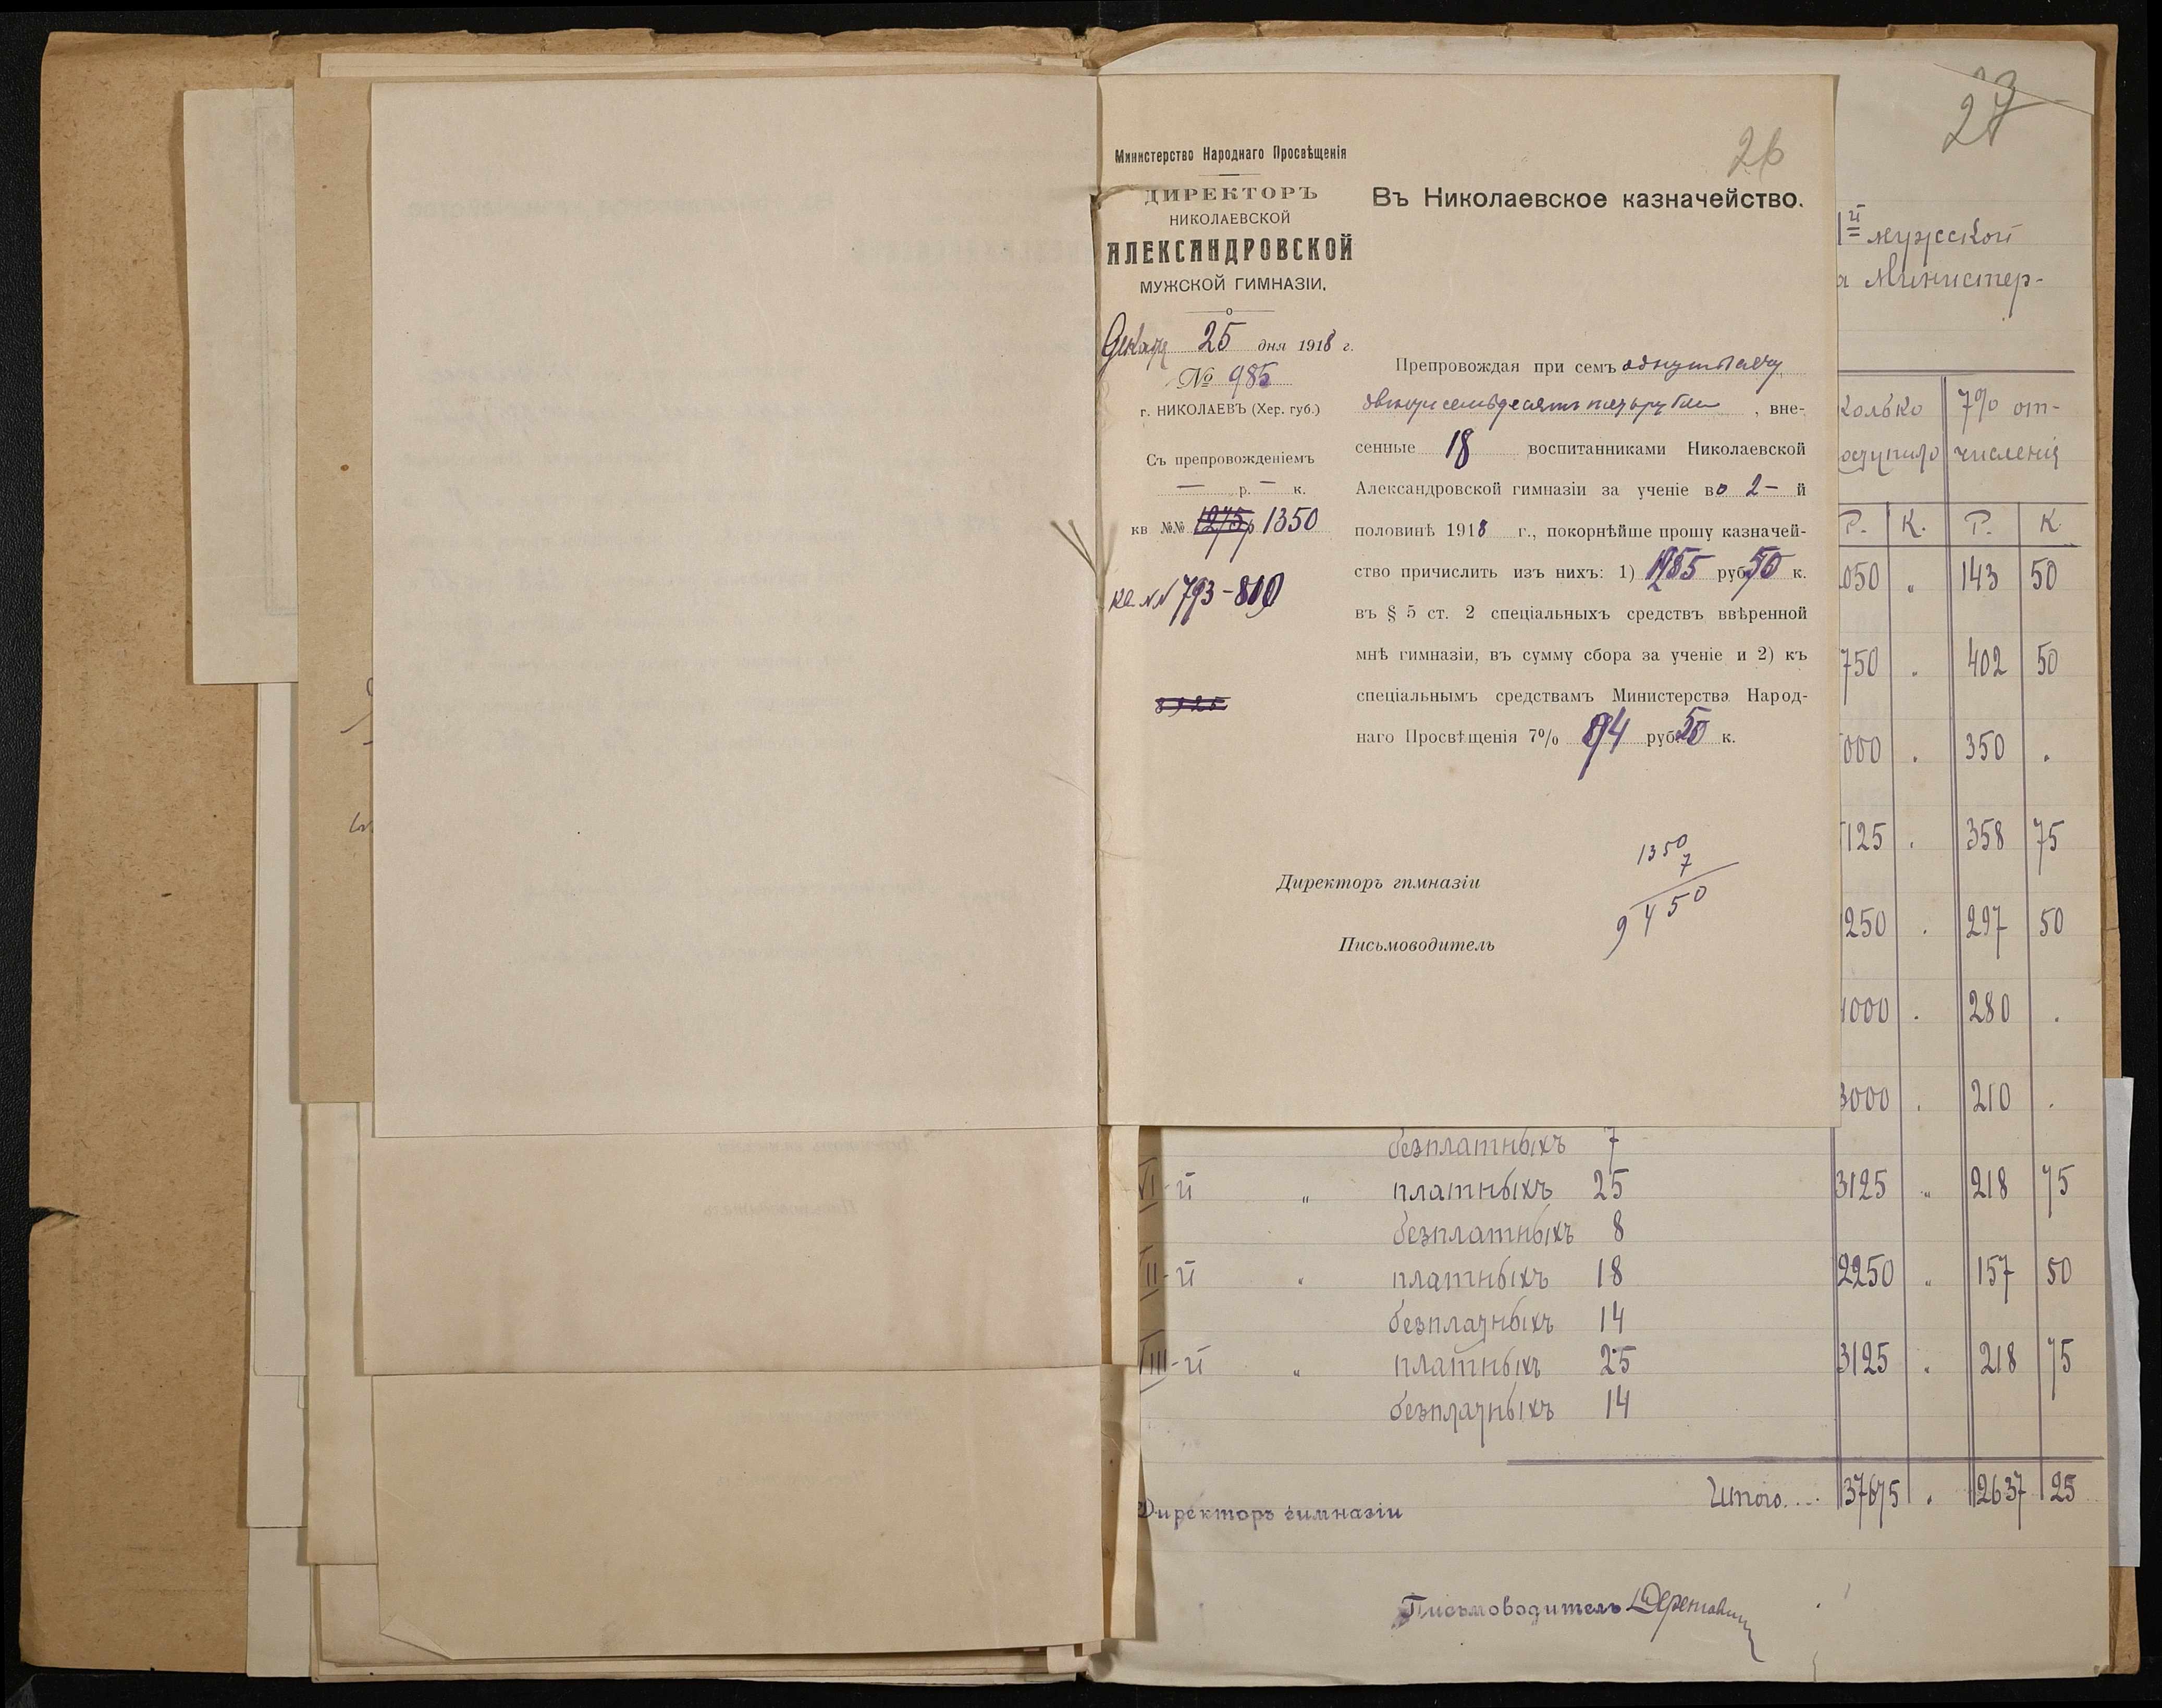 26
Министерство Народнаго Просвѣщенія
ДИРЕКТОРЪ
НИКОЛАЕВСКОЙ
АЛЕКСАНДРОВСКОЙ
МУЖСКОЙ ГИМНАЗІИ.
Декабр 25 дня 1918 г.
№ 985
г. НИКОЛАЕВЪ (Хер. губ.)
Съ препровожденіемъ
— р. — к.
кв №№ 1275р 1350
кв NN 793-810
Въ Николаевское казначейство.
Препровождая при семъ одну тысячу
двѣсти семьдесятъ пять рубли, вне-
сенные 18 воспитанниками Николаевской
Александровской гимназіи за ученіе во 2- й
половинѣ 1918 г., покорнѣйше прошу казначей-
ство причислить изъ нихъ: 1) 1255 руб 50 к.
въ § 5 ст. 2 спеціальныхъ средствъ ввѣренной
мнѣ гимназіи, въ сумму сбора за ученіе и 2) къ
спеціальнымъ средствамъ Министерства Народ-
наго Просвѣщенія 7% 94 руб 50 к.
1350
7
9450
Директоръ гимназіи
Письмоводитель
27
1й мужской
а Министер-
колько 7% от-
оступило численія
Р. К. Р. К
050 „ 143 50
750 . 402 50
000 . 350 .
125 . 358 75
250 . 297 50
4000 . 280 .
3000 . 210 .
безплатныхъ 7
VI-й „ платныхъ 25 3125 „ 218 75
безплатныхъ 8
II-й „ платныхъ 18 2250 „ 157 50
безплатныхъ 14
III-й „ платныхъ 25 3125 „ 218 75
безплатныхъ 14
Итого.... 37675 . 2637 25
Директоръ гимназіи
Письмоводитель